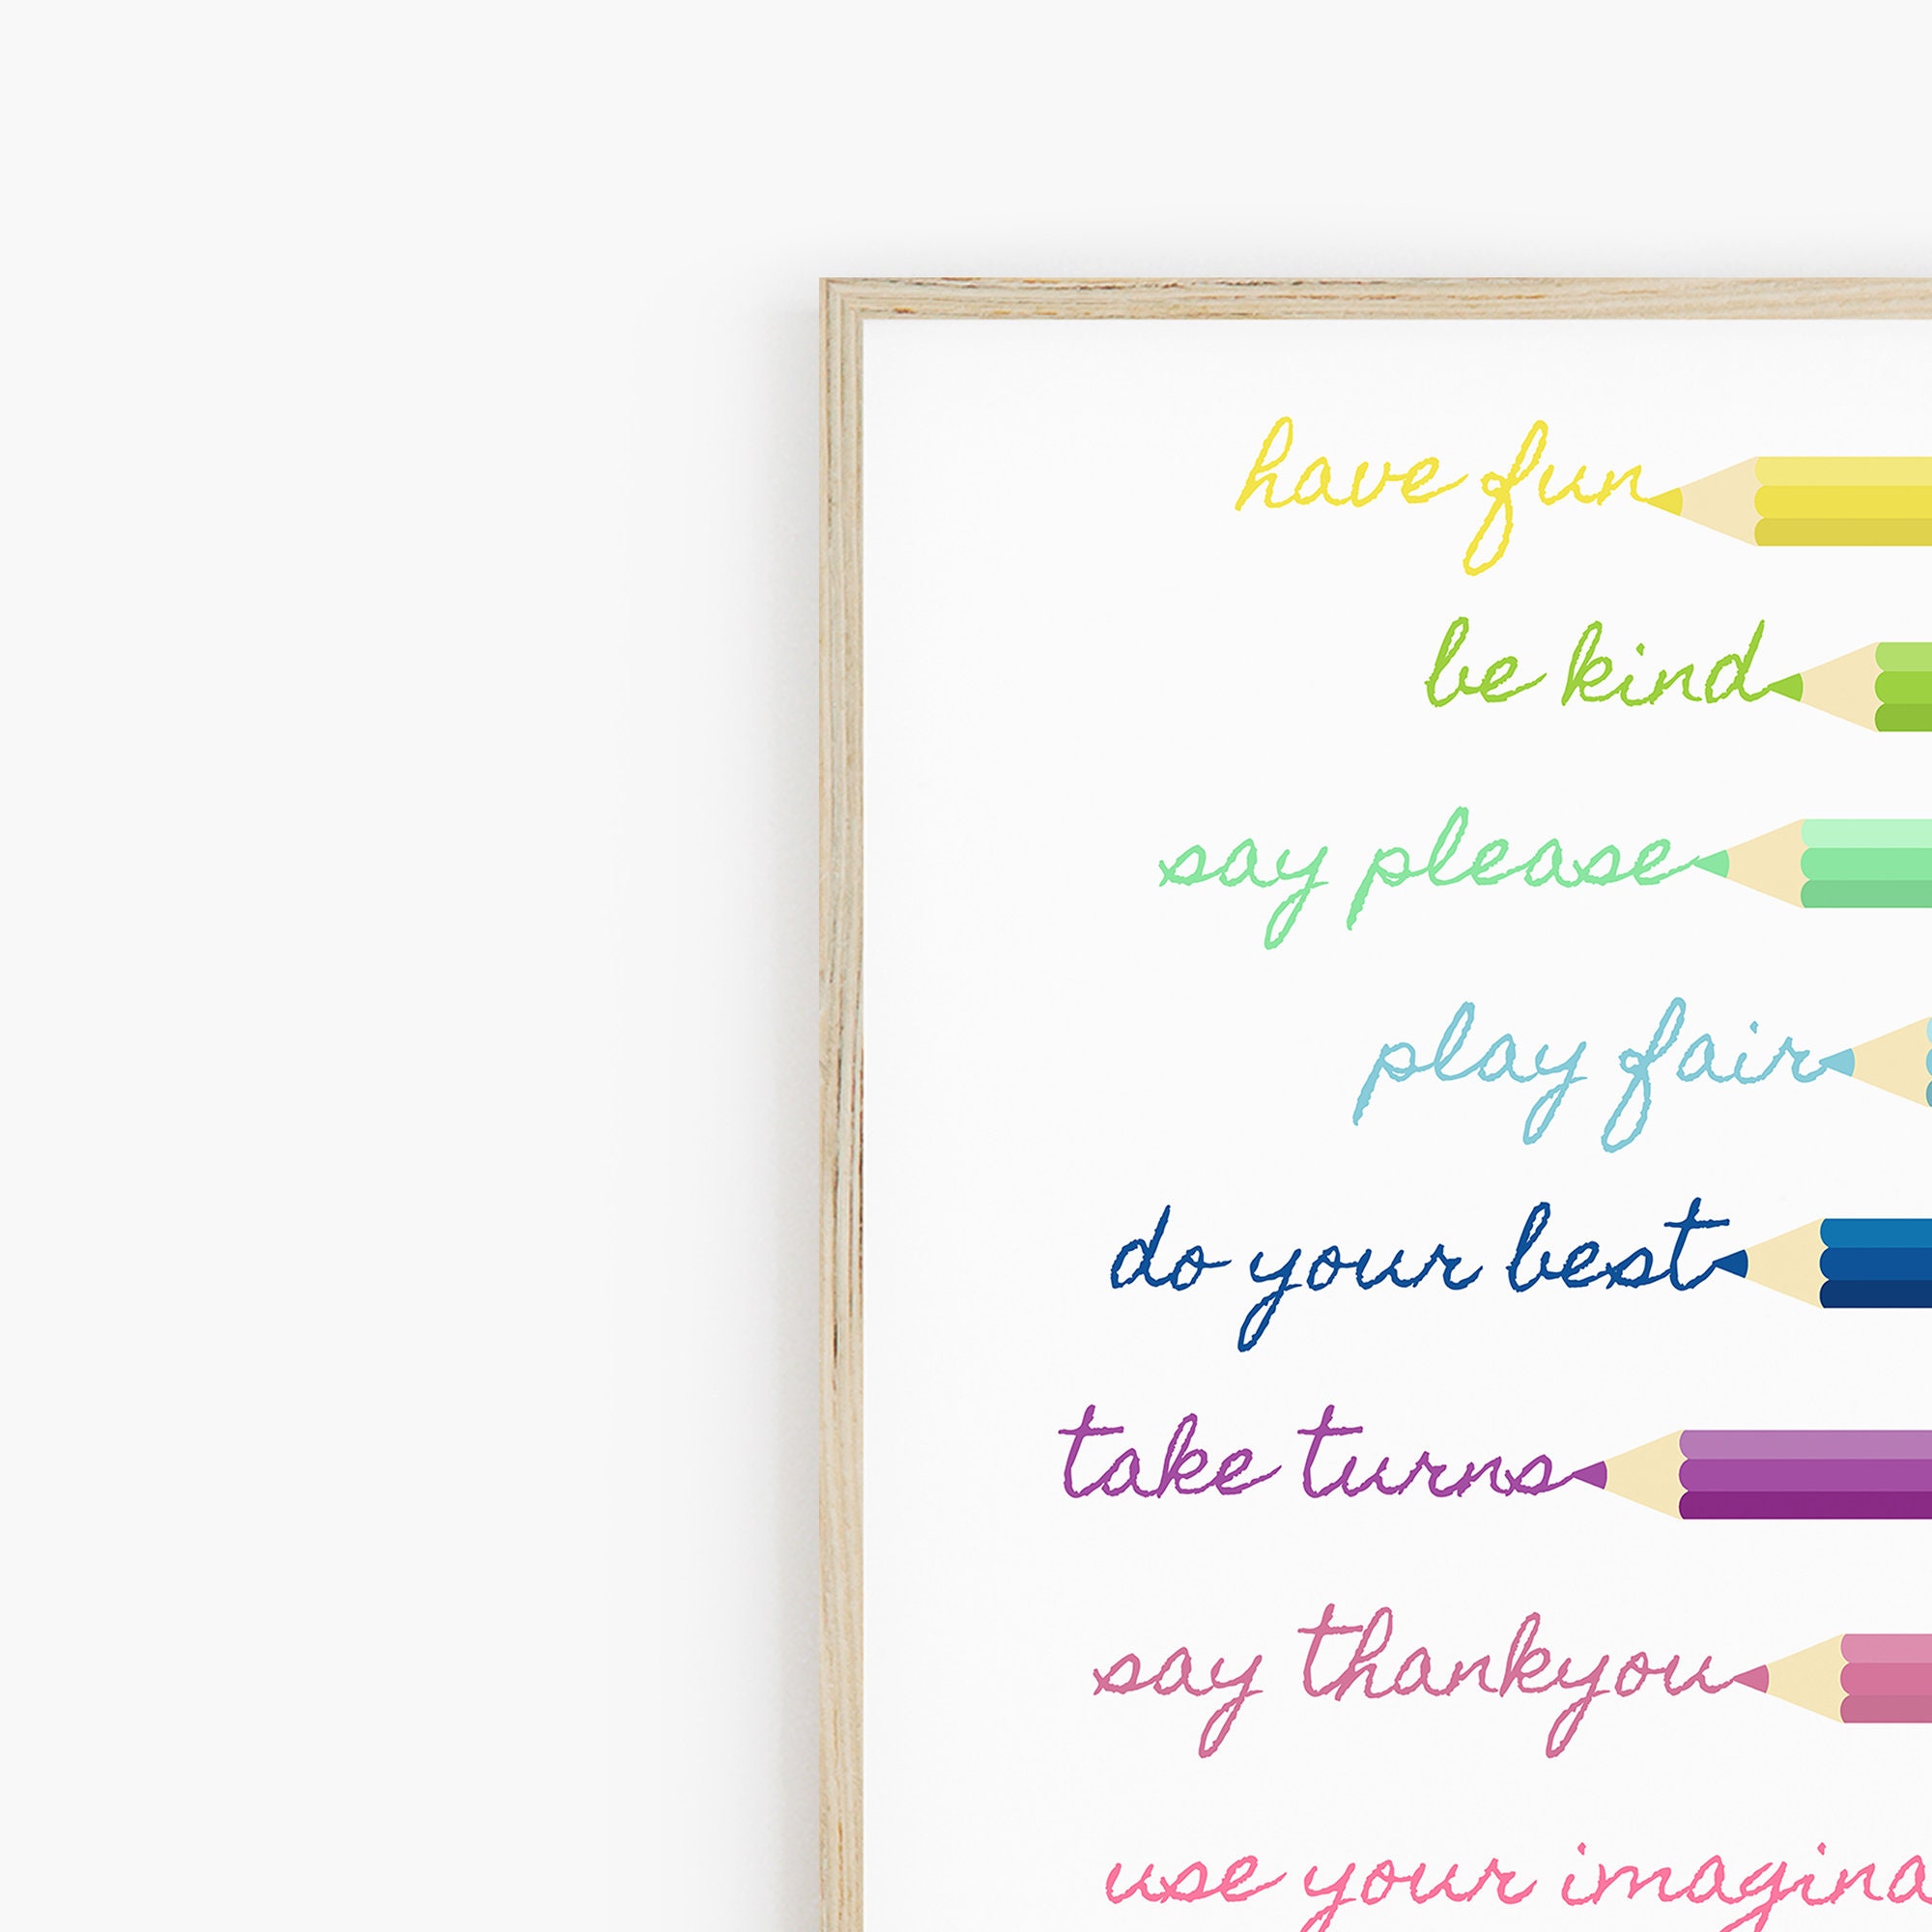 have fun
be kind
say please
play fair
do your best
take turns
say thankyou
use your imagina